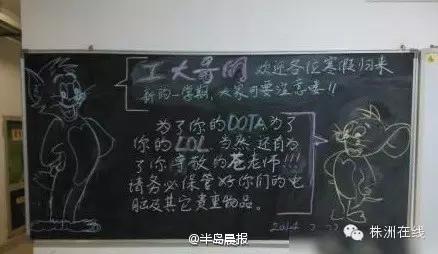 工大哥的 欢迎各位寒假归来
新的一学期,大家可要注意喽!!
为了你的DOTA,为了
你的LOL,当然还有为
了你导敬的苍老师!!!
请务必保管好你们的电
脑及其它贵重物品。
2014
@半岛晨报
株洲在线